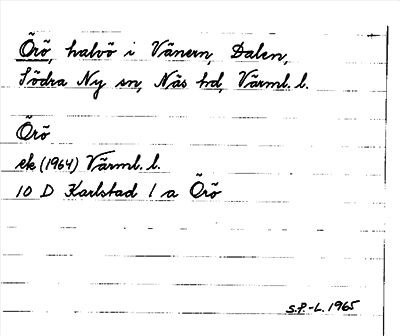 Örö, halvö i Vänern, Dalen,
Södra Ny sn, Näs hd, Värml. l.
Örö
ek (1964) Värml. l.
10 D Karlstad 1 a Örö
S.P.-L. 1965